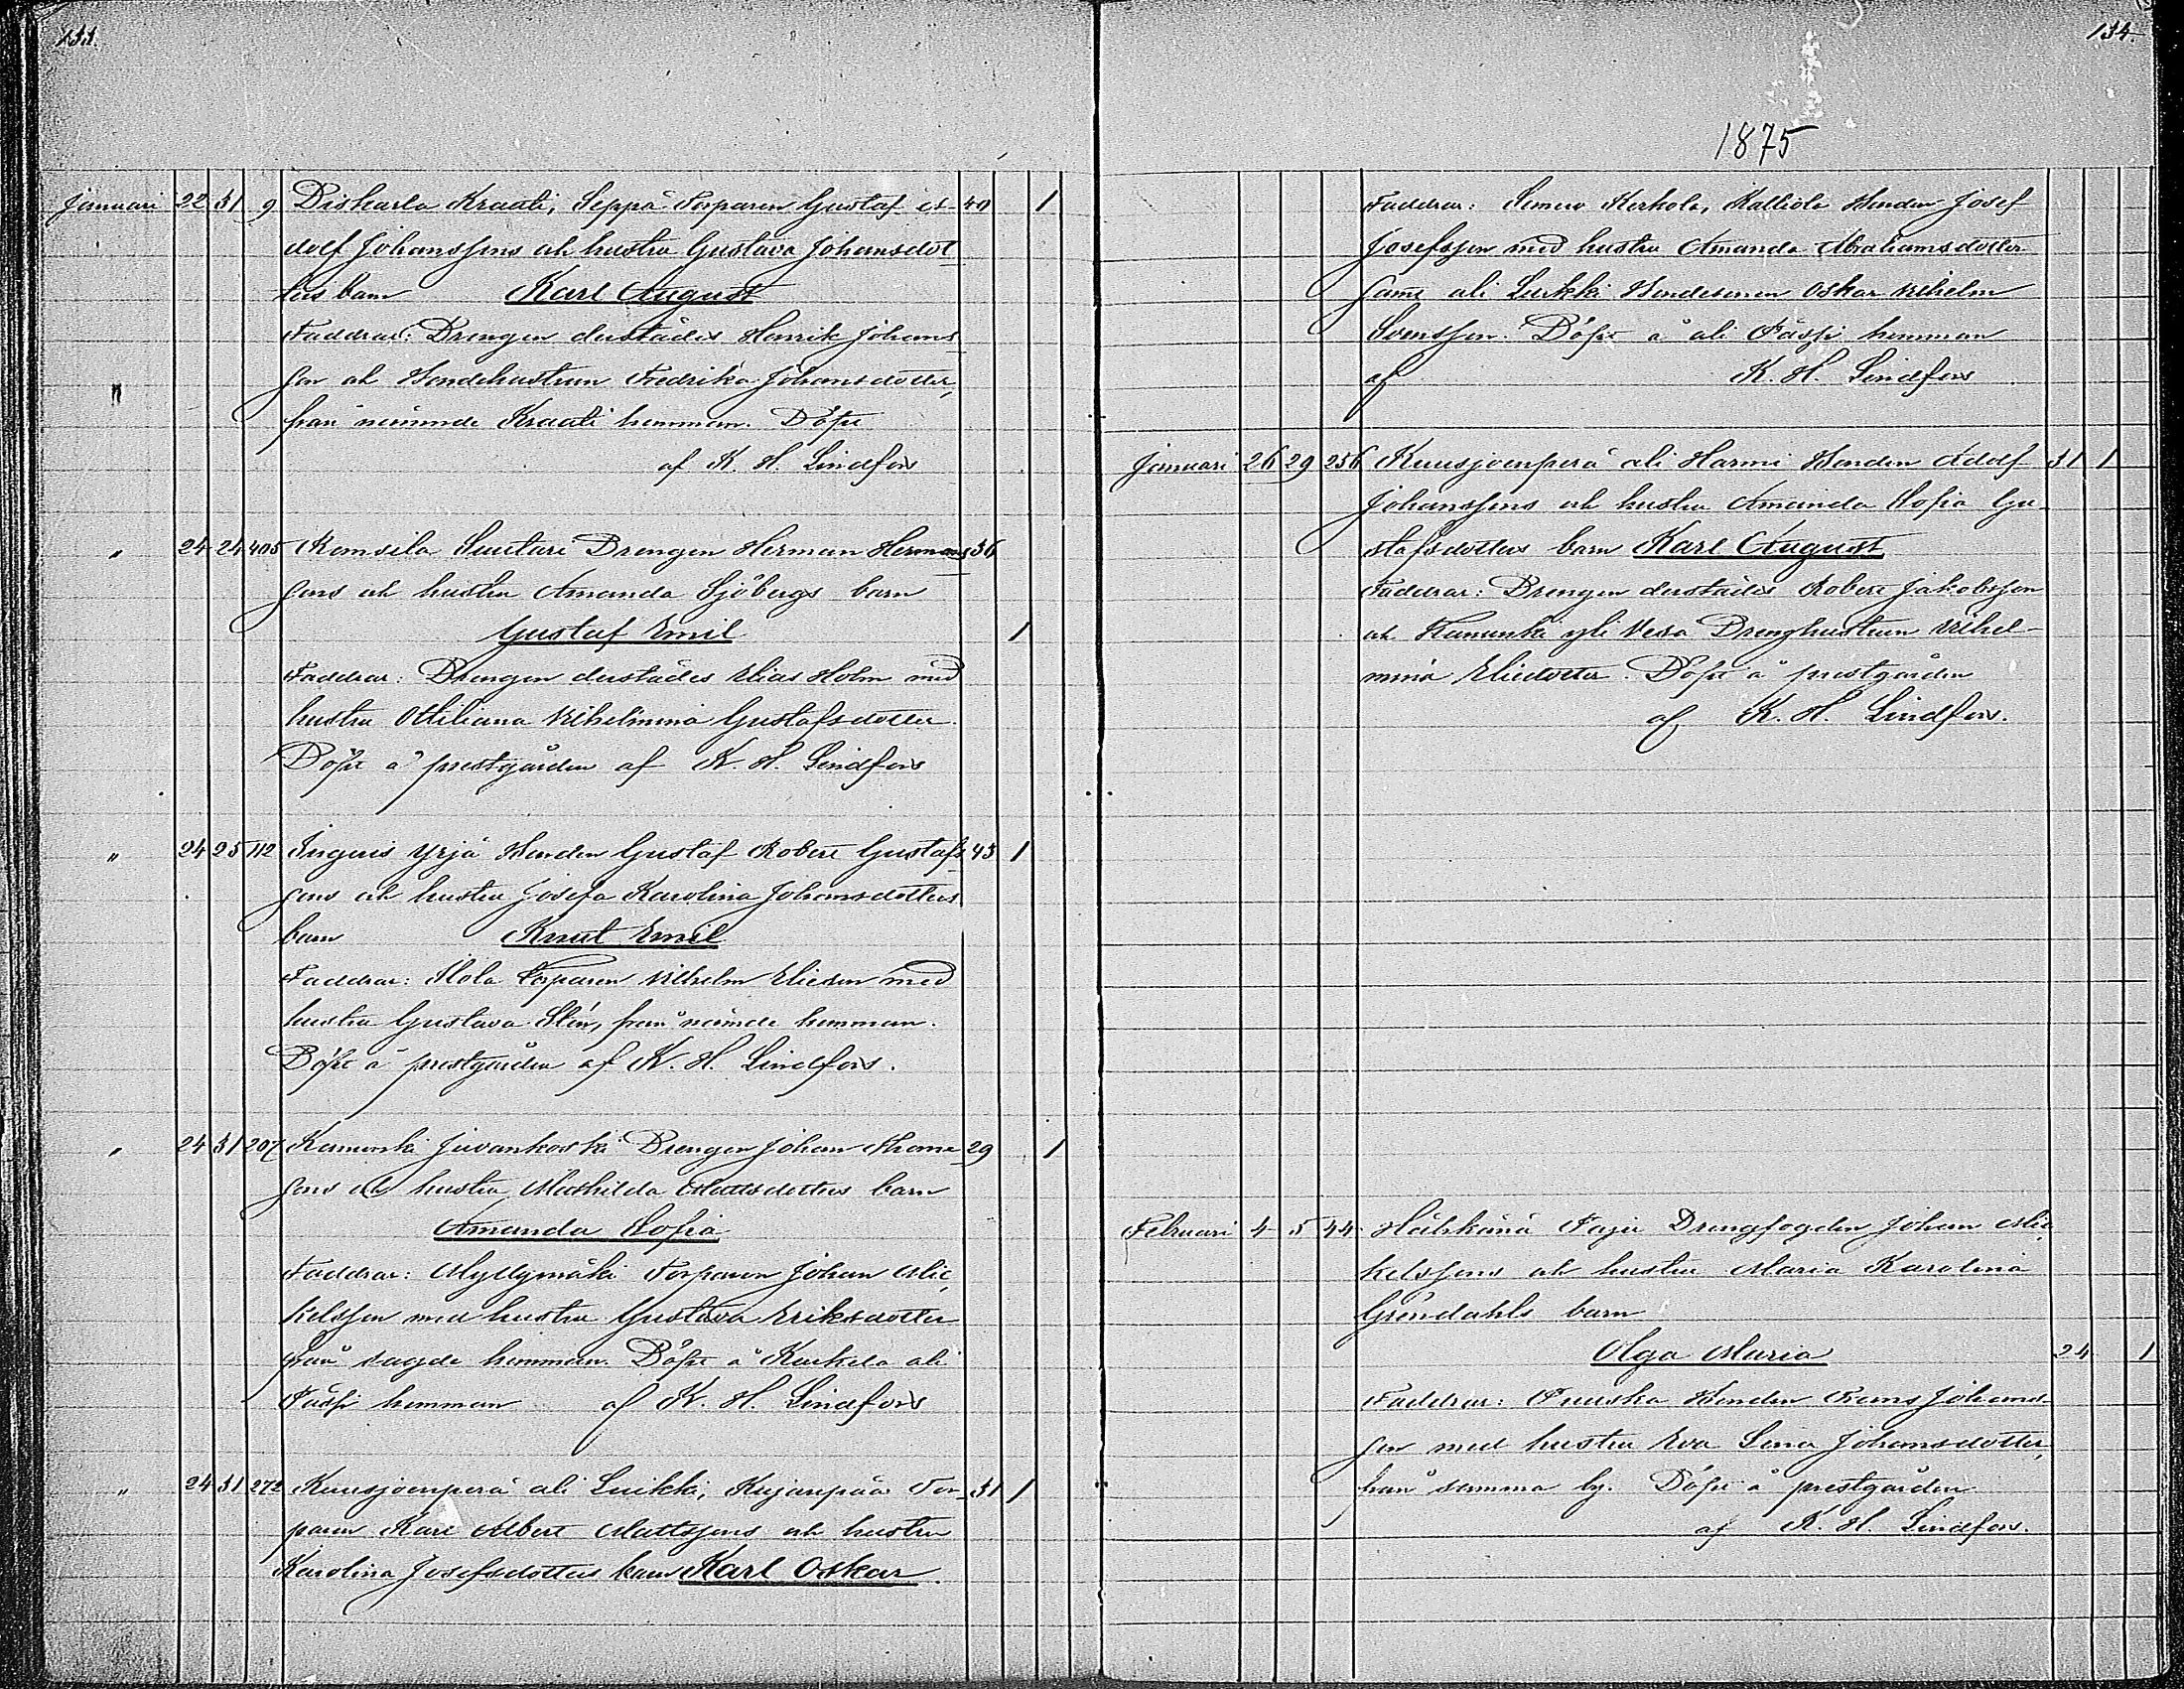 133.
Januari 22 31 9 Piskarla Kraati, Seppä Torparen Gustaf A- 40 1
dolf Johanssons och hustru Gustava Johansdot
ters barn Karl August
Faddrar: Drengen derstädes Henrik Johans
son och Bondehustrun Fredrika Johansdotter,
från nämnde Kraati hemman. Döpt
af K. H. Lindfors
" 24 24 405 Suutari Drengen Herman Hermans 36
sons och hustru Amanda Sjöbergs barn
Gustaf Emil 1
Faddrar: Drengen derstädes Elias Holm med
hustru Ottiliana Vilhelmina Gustafsdotter.
Döpt å prestgården af K. H. Lindfors
" 24 25 112 Inguis Yrjä Bonden Gustaf Robert Gustafs 43 1
sons och hustru Josefa Karolina Johansdotters
barn Knut Emil
Faddrar: Torparen Vilhelm Elieson med
hustru Gustava Sten, från nämde hemman.
Döpt å prestgården af K. H. Lindfors.
" 24 31 207 Kanunki Juvankoski Drengen Johan Thoma 29 1
sons och hustru Mathilda Mattsdotters barn
Amanda Sofia
Faddrar: Myllymäki Torparen Johan Mic
kelsson med hustru Gustava Eriksdotter
från sagde hemman. Döpt å Kurkela ali
Pässi hemman af K. H. Lindfors
" 24 31 272 Kuusjoenperä ali Luikki, Kujanpää Tor- 31 1
paren Karl Albert Mattssons och hustru
Karolina Josefsdotters barn Karl Oskar.
134.
1875
Faddrar: Kerkola, Kalliola Bonden Josef
Josefsson med hustru Amanda Abrahamsdotter
samt ali Luikki Bondesonen Oskar Vilhelm
Svensson. Döpt å ali Pässi hemman
af K. H. Lindfors
Januari 26 29 256 Kuusjoenperä ali Harmi Bonden Adolf 31 1
Johanssons och hustru Amanda Sofia Gu
stafsdotters barn Karl August
Faddrar: Drengen derstädes Robert Jakobsson
och Kanunki yli Vesa Drenghustrun Vilhel-
mina Eliedotter. Döpt å prestgården
af K. H. Lindfors.
Februari 4 5 44 Paju Drengfogden Johan Mic
kelssons och hustru Maria Karolina
Gröndahls barn
Olga Maria 24 1
Faddrar: Puuska Bonden Frans Johans-
son med hustru Eva Lena Johansdotter,
från samma by. Döpt å prestgården
af K. H. Lindfors.